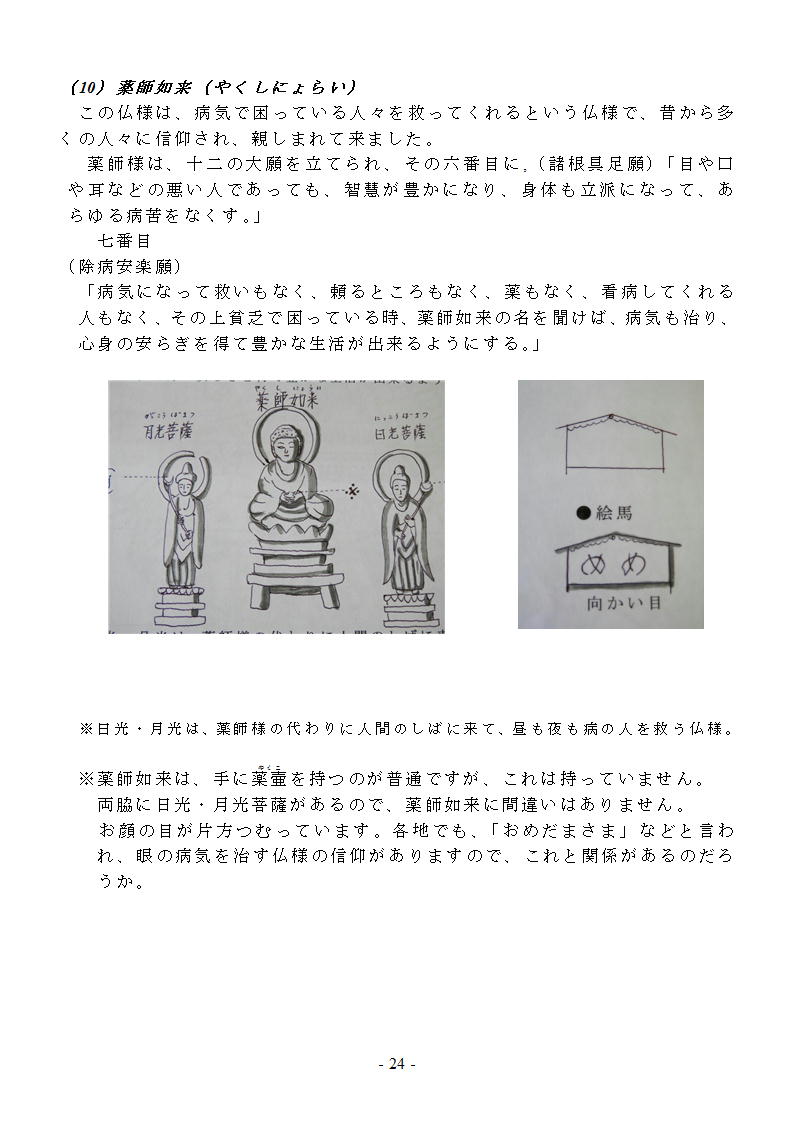 （10）薬師如来（やくしにょらい）
この仏様は、病気で困っている人々を救ってくれるという仏様で、昔から多
くの人々に信仰され、親しまれて来ました。
薬師様は、十二の大願を立てられ、その六番目に,（諸根具足願）「目や口
や耳などの悪い人であっても、智慧が豊かになり、身体も立派になって、あ
らゆる病苦をなくす。」
七番目
（除病安楽願）
「病気になって救いもなく、頼るところもなく、薬もなく、看病してくれる
人もなく、その上貧乏で困っている時、薬師如来の名を聞けば、病気も治り、
心身の安らぎを得て豊かな生活が出来るようにする。」
やくしにょらい
薬師如来
がっこうぼさつ
月光菩薩
にっこうぼさつ
日光菩薩
※
●絵馬
めめ
向かい目
※日光・月光は、薬師様の代わりに人間のしばに来て、昼も夜も病の人を救う仏様。
※薬師如来は、手に薬壷を持つのが普通ですが、これは持っていません。
両脇に日光・月光菩薩があるので、薬師如来に間違いはありません。
お顔の目が片方つむっています。各地でも、「おめだまさま」などと言わ
れ、眼の病気を治す仏様の信仰がありますので、これと関係があるのだろ
うか。
- 24 -